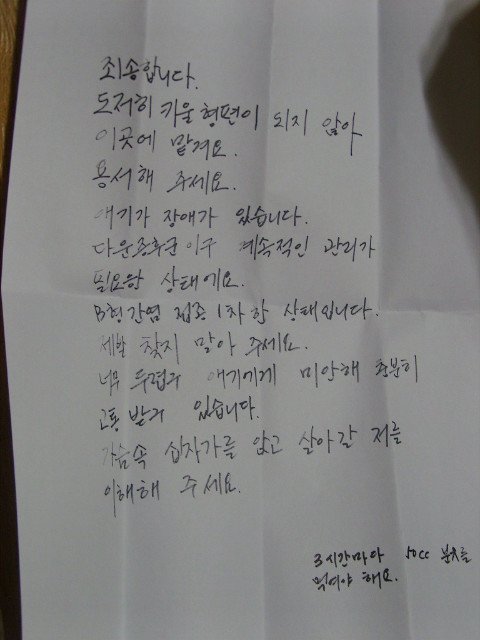 죄송합니다.
도저히 키울 형편이 되지 않아
이곳에 맡겨요.
용서해 주세요.
애기가 장애가 있습니다.
다운증후군이구 계속적인 관리가
필요한 상태에요.
B형간염 접종 1차 한 상태입니다.
제발 찾지 말아 주세요.
너무 두렵고 애기에게 미안해 충분히
고통 받고 있습니다.
가슴속 십자가를 안고 살아갈 저를
이해해 주세요.
3시간마다 50cc 분유를
먹여야 해요.